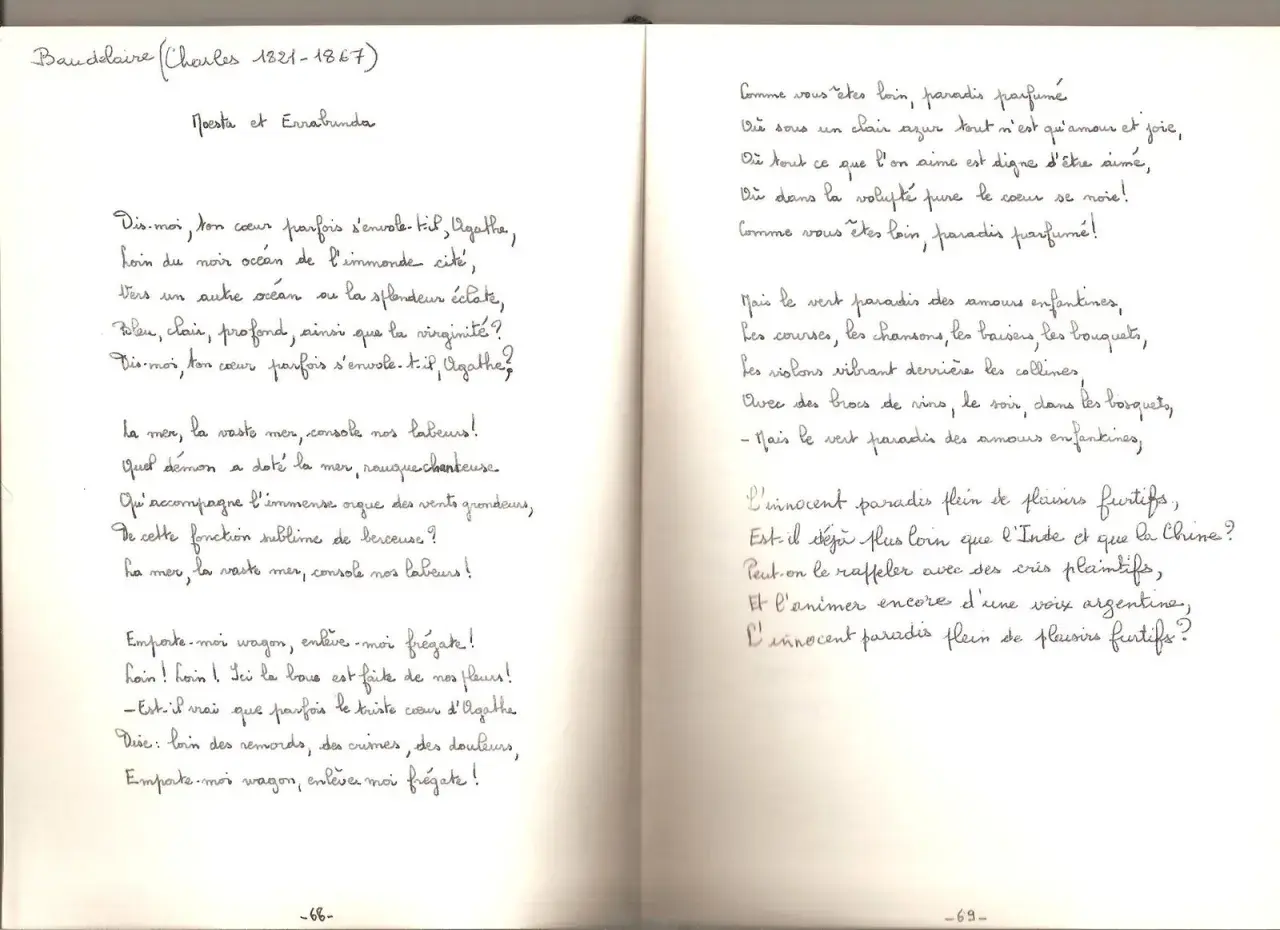 Baudelaire (Charles 1821-1867)
Moesta et Errabunda
Dis-moi, ton cœur parfois s'envole-t-il, Agathe,
Loin du noir océan de l'immonde cité,
Vers un autre océan ou la splendeur éclate,
Bleu, clair, profond, ainsi que la virginité?
Dis-moi, ton cœur parfois s'envole-t-il, Agathe?
La mer, la vaste mer, console nos labeurs!
Quel démon a doté la mer, rauque chanteuse
Qu'accompagne l'immense orgue des vents grondeurs,
De cette fonction sublime de berceuse?
La mer, la vaste mer, console nos labeurs!
Emporte-moi wagon, enlève-moi frégate!
Loin! Loin! Ici la boue est faite de nos pleurs!
- Est-il vrai que parfois le triste cœur d'Agathe
Dise: loin des remords, des crimes, des douleurs,
Emporte-moi wagon, enlève moi frégate!
-68-
Comme vous êtes loin, paradis parfumé
Où sous un clair azur tout n'est qu'amour et joie,
Où tout ce que l'on aime est digne d'être aimé,
Où dans la volupté pure le coeur se noie!
Comme vous êtes loin, paradis parfumé!
Mais le vert paradis des amours enfantines,
Les courses, les chansons, les baisers, les bouquets,
Les violons vibrant derrière les collines,
Avec des brocs de vins, le soir, dans les bosquets,
- Mais le vert paradis des amours enfantines,
L'innocent paradis plein de plaisirs furtifs,
Est-il déjà plus loin que l'Inde et que la Chine?
Peut-on le rappeler avec des cris plaintifs,
Et l'animer encore d'une voix argentine,
L'innocent paradis plein de plaisirs furtifs?
-69-